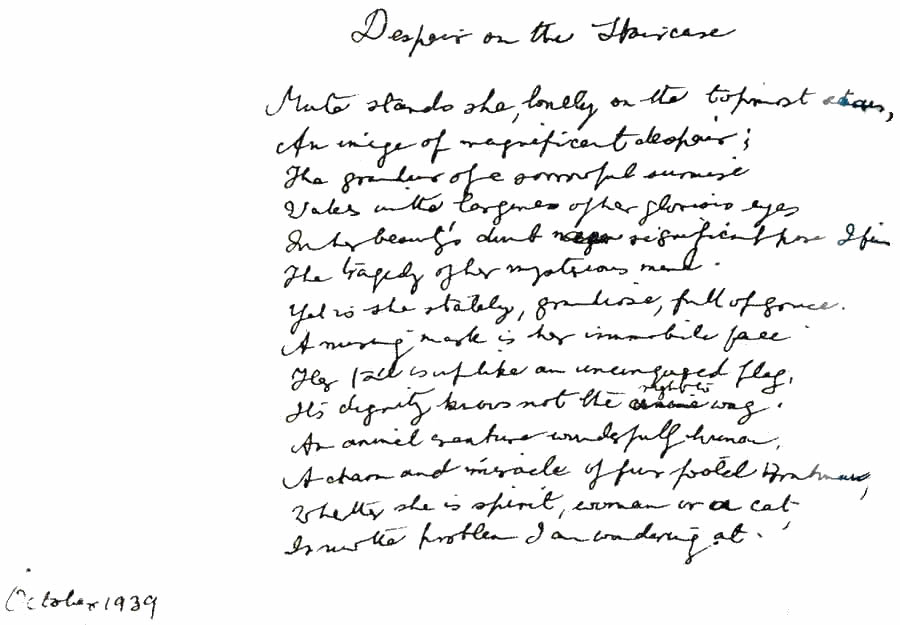 Despair on the Staircase
Mute stands she, lonely on the topmost stair,
An image of magnificent despair;
The grandeur of a sorrowful surmise
Wakes in the largeness of her glorious eyes
In her beauty's dumb significant pose I fin
The tragedy of her mysterious mind.
Yet is she stately, grandiose, full of grace.
A musing mask is her immobile face
Her tail is up like an unconquered flag,
Its dignity knows not the right to wag.
An animal creature wonderfully human,
A charm and miracle of fur footed Brahman,
Whether she is spirit, woman or a cat,
Is now the problem I am wondering at.
October 1939